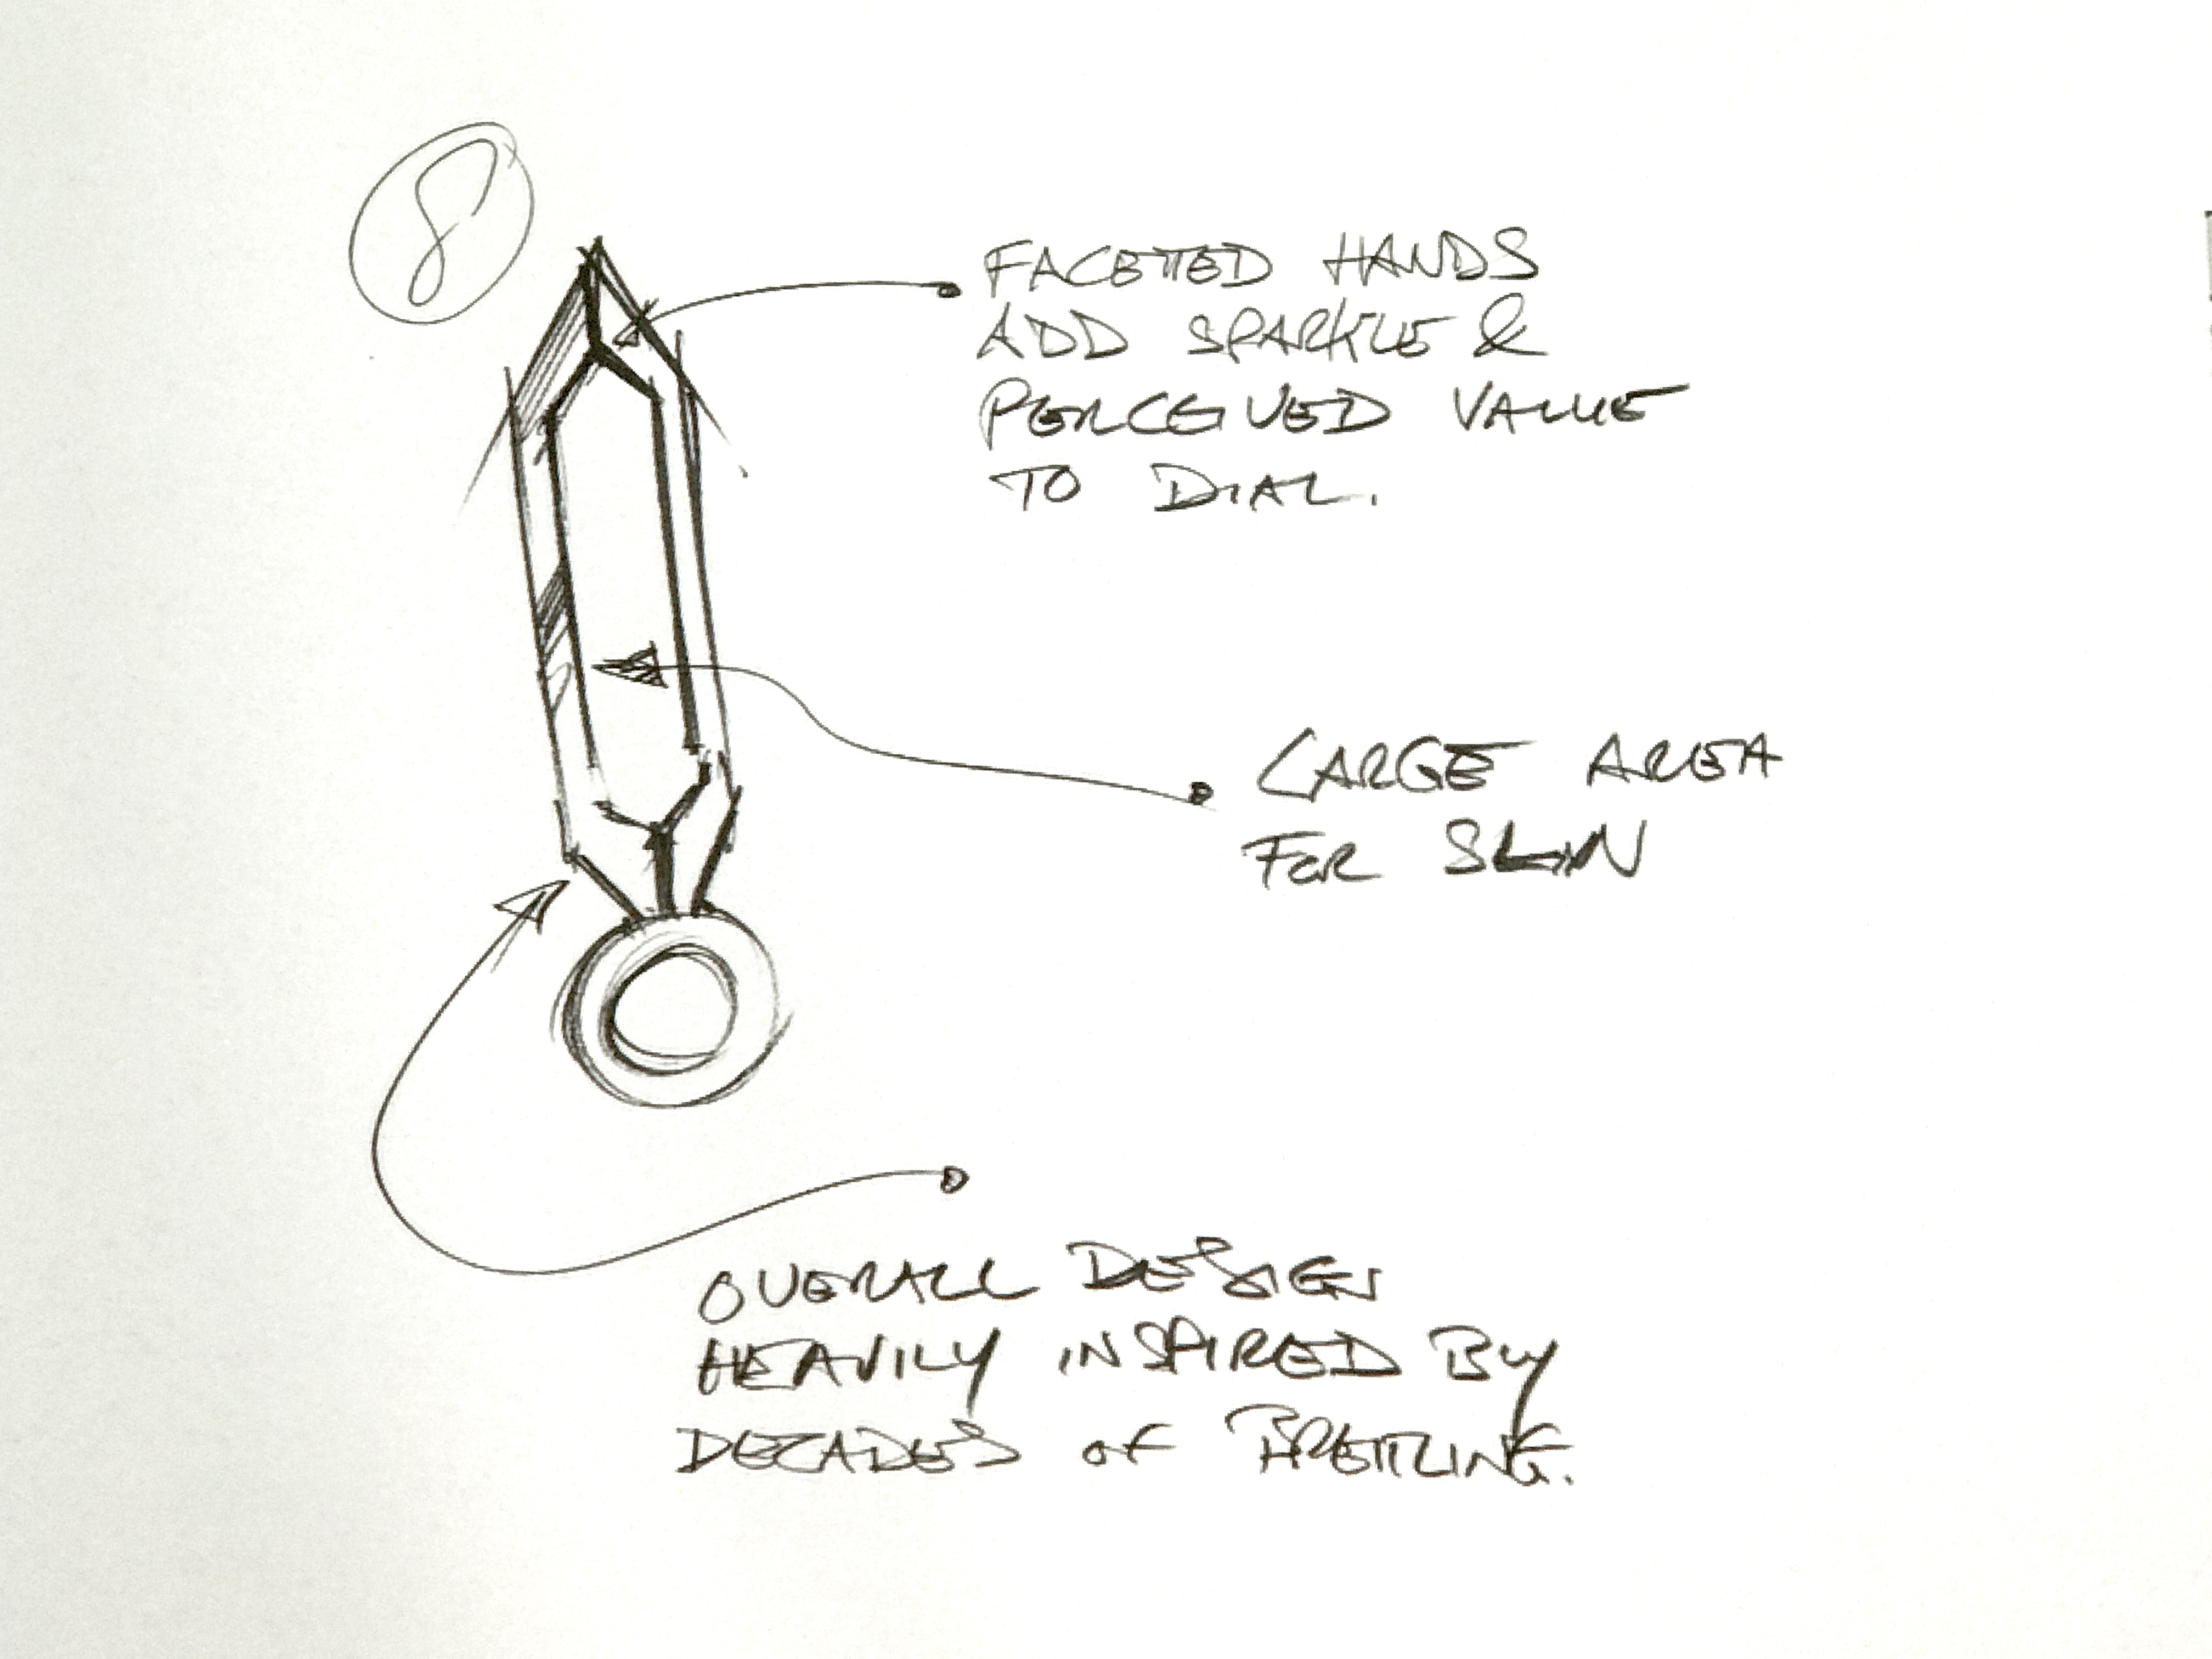 8
FACETTED HANDS
ADD SPARKLE &
PERCEIVED VALUE
TO DIAL.
LARGE AREA
FOR SLIN
OVERALL DESIGN
HEAVILY INSPIRED BY
DECADES OF BREITLING.